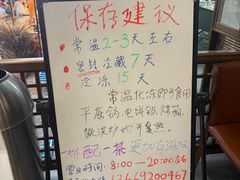 保存建议
常温2-3天左右
密封冷藏7天
冷冻15天
常温化冻即可食用
平底锅、电饼铛、烤箱
一饼配一茶
营业时间：8:00—20:00左右
13669200467